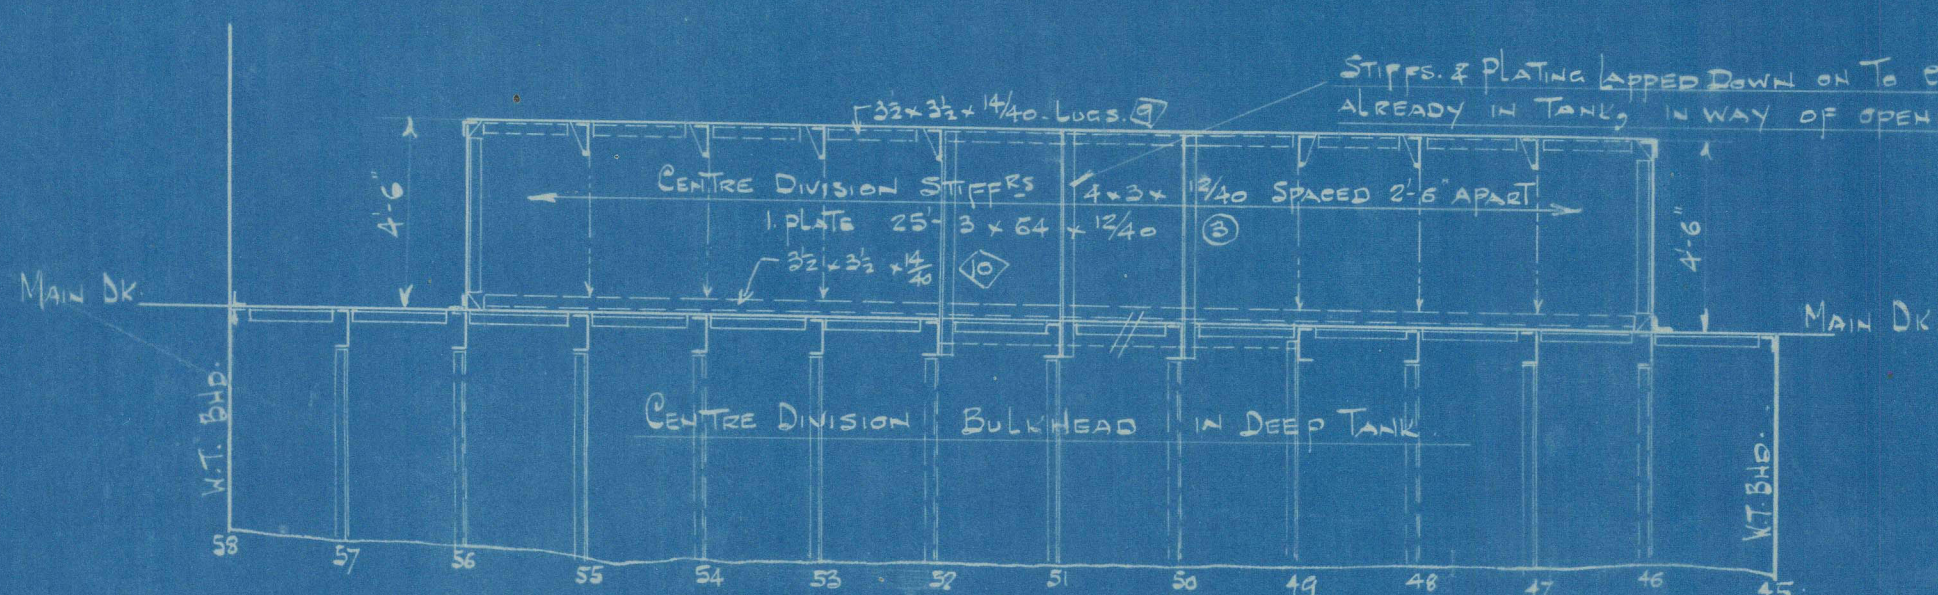 STIFFS. & PLATING LAPPED DOWN ON TO
ALREADY IN TANK, IN WAY OF OPEN
3½ × 3½ × 14/40 - LUGS. 9
4'-6"
CENTRE DIVISION STIFFRS 4 × 3 × 12/40 SPACED 2'-6" APART
1. PLATE 25'-3 × 64 × 12/40 3
3½ × 3½ × 14/40 10
4'-6"
MAIN DK.
MAIN DK
W.T. BHD.
CENTRE DIVISION BULKHEAD IN DEEP TANK.
W.T. BHD.
58 57 56 55 54 53 52 51 50 49 48 47 46 45